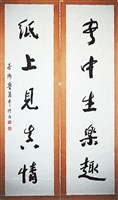 書中生樂趣
紙上見真情